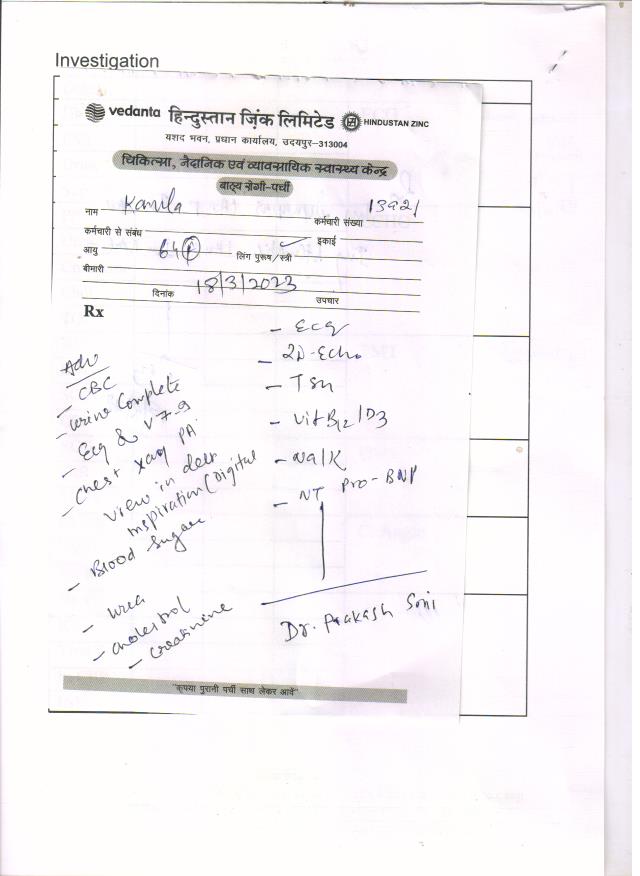 Investigation
vedanta हिन्दुस्तान ज़िंक लिमिटेड HINDUSTAN ZINC
यशद भवन, प्रधान कार्यालय, उदयपुर–313004
चिकित्सा, नैदानिक एवं व्यावसायिक स्वास्थ्य केन्द्र
बाह्य रोगी-पर्ची
नाम Kamla कर्मचारी संख्या 13921
कर्मचारी से संबंध इकाई
आयु 64 F लिंग पुरूष/स्त्री ✓
बीमारी
दिनांक 18/3/2023 उपचार
Rx
Adv
- CBC
- Urine Complete
- Ecg & V 7-9
- Chest xray PA
view in deep
inspiration (Digital
- Blood Sugar
- urea
- cholestrol
- creatinine
- Ecg
- 2D-Echo
- TSH
- Vit B12/D3
- Na/K
- NT Pro-BNP
Dr. Prakash Soni
"कृपया पुरानी पर्ची साथ लेकर आवें"